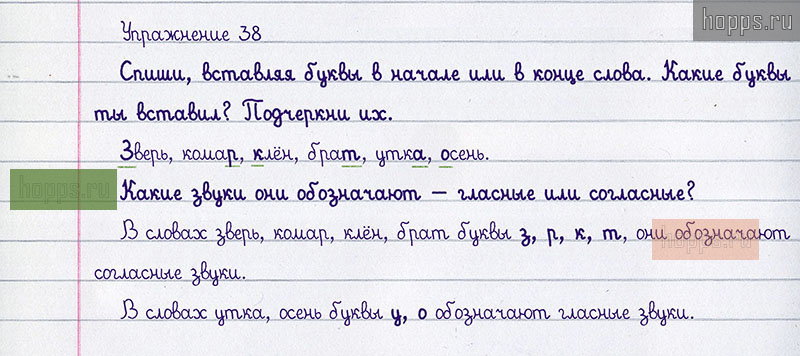 hopps.ru
Упражнение 38
Спиши, вставляя буквы в начале или в конце слова. Какие буквы
ты вставил? Подчеркни их.
Зверь, комар, клён, брат, утка, осень.
hopps.ru
Какие звуки они обозначают — гласные или согласные?
В словах зверь, комар, клён, брат буквы з, р, к, т, они обозначают
hopps.ru
согласные звуки.
В словах утка, осень буквы у, о обозначают гласные звуки.